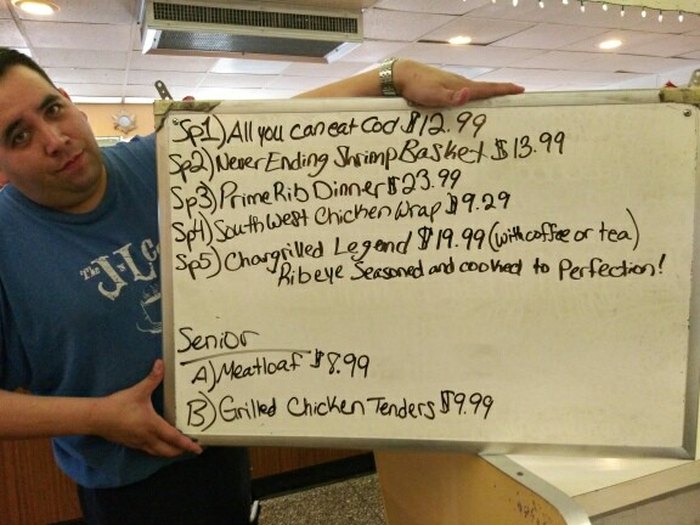 Sp1) All you can eat Cod $12.99
Sp2) Never Ending Shrimp Basket $13.99
Sp3) Prime Rib Dinner $23.99
Sp4) SouthWest Chicken Wrap $9.29
Sp5) Chargrilled Legend $19.99 (with coffee or tea)
Ribeye Seasoned and cooked to Perfection!
Senior
A) Meatloaf $8.99
B) Grilled Chicken Tenders $9.99
The J&L